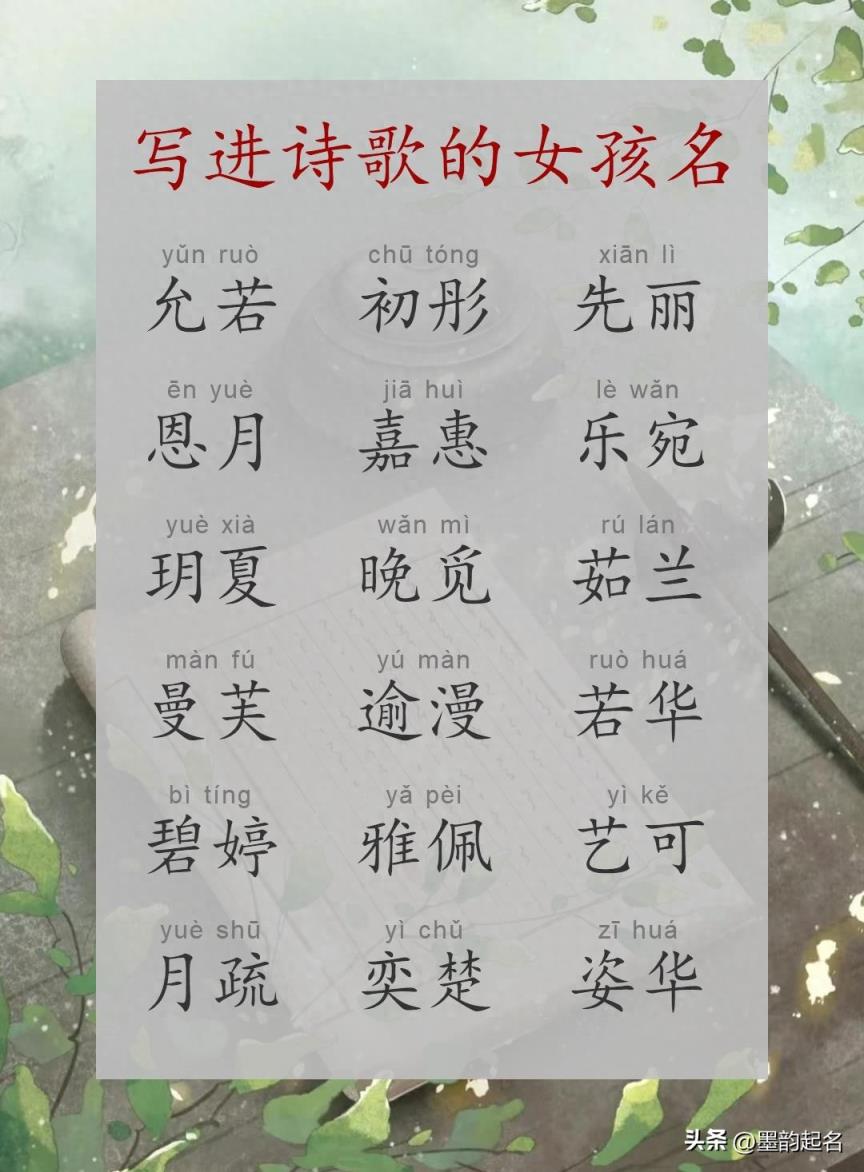 写进诗歌的女孩名
yǔn ruò chū tóng xiān lì
允若 初彤 先丽
ēn yuè jiā huì lè wǎn
恩月 嘉惠 乐宛
yuè xià wǎn mì rú lán
玥夏 晚觅 茹兰
màn fú yú màn ruò huá
曼芙 逾漫 若华
bì tíng yǎ pèi yì kě
碧婷 雅佩 艺可
yuè shū yì chǔ zī huá
月疏 奕楚 姿华
头条 @墨韵起名